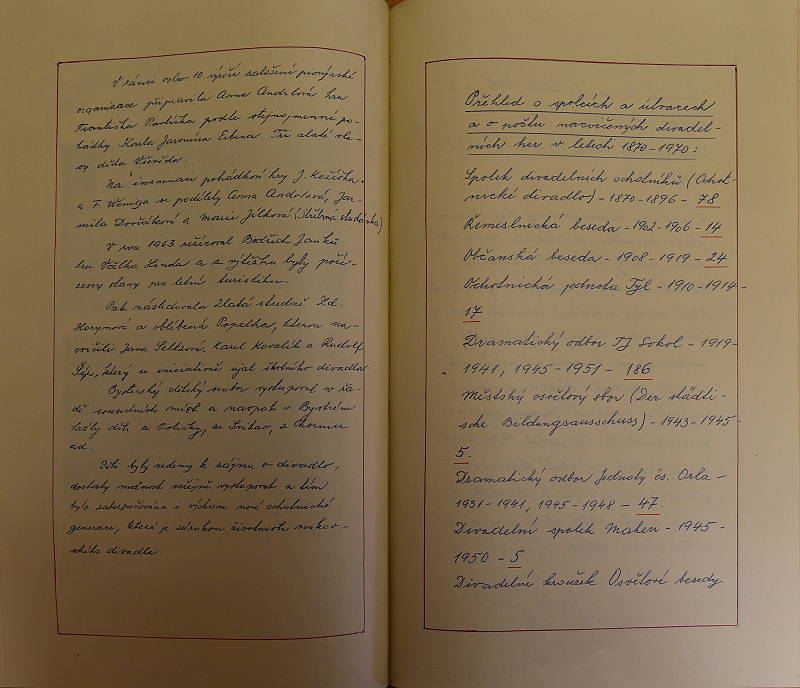 V rámci oslav 10. výročí založení pionýrské
organizace připravila Anna Andrlová hru
Františka Pavlíčka podle stejnojmenné po-
hádky Karla Jaromíra Erbena Tři zlaté vla-
sy děda Vševěda.
Na inscenaci pohádkové hry J. Kožíška
a F. Weniga se podílely Anna Andrlová, Jar-
mila Dvořáková a Marie Jílková (Stříbrná studánka)
V roce 1963 režíroval Bedřich Janků
hru Válka Linda a z výtěžku byly poří-
zeny stany pro letní turistiku.
Pak následovala Zlatá studně Zd.
Horynové a oblíbená Popelka, kterou na-
cvičili Jana Seltzová, Karel Kovalík a Rudolf
který se iniciativně ujal školního divadla
Bysterský dětský soubor vystupoval v řa-
dě sousedních míst a naopak v Bystrém
hrály děti z Poličky, ze Svitav, z Chornice
ad.
Děti byly vedeny k zájmu o divadlo,
dostaly možnost veřejně vystupovat a tím
byla zabezpečována i výchova nové ochotnické
generace, která je zárukou životnosti venkov-
ského divadla.
Přehled o spolcích a útvarech
a o počtu nacvičených divadel-
ních her v letech 1870-1970:
Spolek divadelních ochotníků (Ochot-
nické divadlo) - 1870-1896 - 78
Řemeslnická beseda - 1902-1906 - 14
Občanská beseda - 1908-1919 - 24
Ochotnická jednota Tyl - 1910-1914 -
17
Dramatický odbor TJ Sokol - 1919-
1941, 1945-1951 - 186
Městský osvětový sbor (Der städti-
sche Bildungsausschuss) - 1943-1945 -
5.
Dramatický odbor Jednoty čs. Orla -
1931-1941, 1945-1948 - 47.
Divadelní spolek Mahen - 1945-
1950 - 5
Divadelní kroužek Osvětové besedy